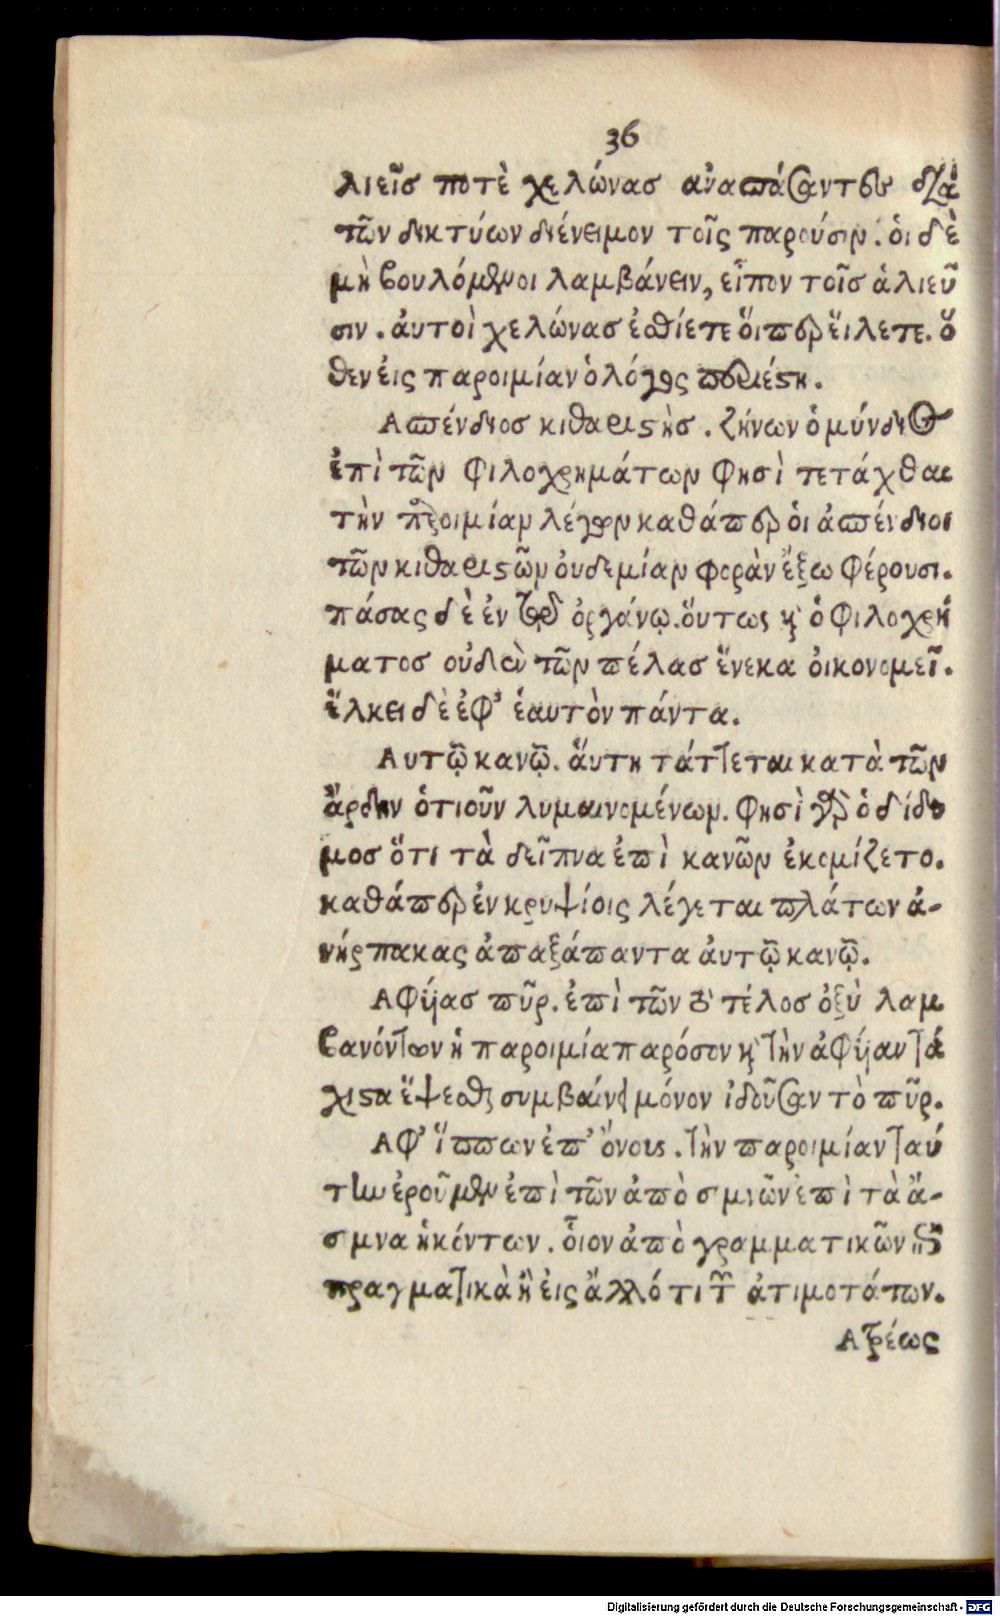 36
λιεῖσ ποτὲ χελώνασ ἀνασπάσαντες διὰ
τῶν δικτύων διένειμον τοῖς παρούσιν. ὁι δὲ
μὴ βουλόμενοι λαμβάνειν, εἶπον τοῖσ ἁλιεῦ
σιν. ἀυτοὶ χελώνασ ἐσθίετε ὅιπερ ἕιλετε. ὅ
θεν ἐις παροιμίαν ὁ λόγος περιέστη.
Ασπένδιοσ κιθαριστὴσ. ζήνων ὁ μύνδιος
ἐπὶ τῶν φιλοχρημάτων φησὶ τετάχθαι
τὴν παροιμίαν λέγων καθάπερ ὁι ἀσπένδιοι
τῶν κιθαριστῶν ὀυδεμίαν φορὰν ἔξω φέρουσι.
πάσας δὲ ἐν τῷ ὀργάνῳ. ὅυτως καὶ ὁ φιλοχρή
ματοσ οὐδὲν τῶν πέλασ ἕνεκα ὀικονομεῖ.
ἕλκει δὲ ἐφ᾽ ἑαυτὸν πάντα.
Αυτῷ κανῷ. ἅυτη τάττεται κατὰ τῶν
ἄρδην ὁτιοῦν λυμαινομένων. φησὶ γὰρ ὁ δίδυ
μοσ ὅτι τὰ δεῖπνα ἐπὶ κανῶν ἐκομίζετο.
καθάπερ ἐν κρυψίοις λέγεται πλάτων ἀ-
νήρπακας ἁπαξάπαντα ἀυτῷ κανῷ.
Αφύασ πῦρ. ἐπὶ τῶν τὸ τέλοσ ὀξὺ λαμ
βανόντων ἡ παροιμία παρόσον καὶ τὴν ἀφύαν τά
χιστα ἕψεσθαι συμβαίνει μόνον ἰδοῦσαν τὸ πῦρ.
Αφ᾽ ἵππων ἐπ᾽ ὄνους. τὴν παροιμίαν ταύ
την ἐροῦμεν ἐπὶ τῶν ἀπὸ σμιῶν ἐπὶ τὰ ἄ-
σμνα ἡκόντων. οἷον ἀπὸ γραμματικῶν ἐς
πραγματικὰ ἢ ἐις ἄλλό τι τῶν ἀτιμοτάτων.
Αχρέως
Digitalisierung gefördert durch die Deutsche Forschungsgemeinschaft - DFG